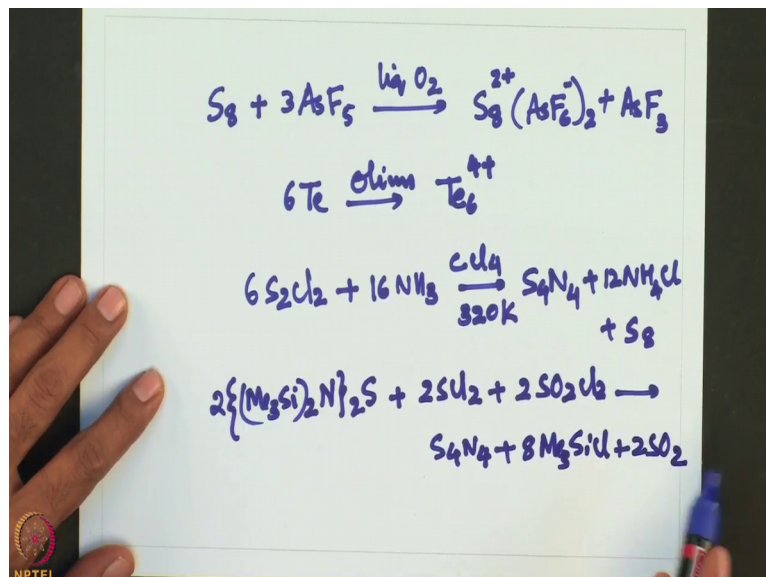 S₈ + 3AsF₅ —liq O₂→ S₈²⁺(AsF₆⁻)₂ + AsF₃
6Te —Olium→ Te₆⁴⁺
6S₂Cl₂ + 16NH₃ —CCl₄ 320K→ S₄N₄ + 12NH₄Cl
+ S₈
2{(Me₃Si)₂N}₂S + 2SCl₂ + 2SO₂Cl₂ →
S₄N₄ + 8Me₃SiCl + 2SO₂
NPTEL